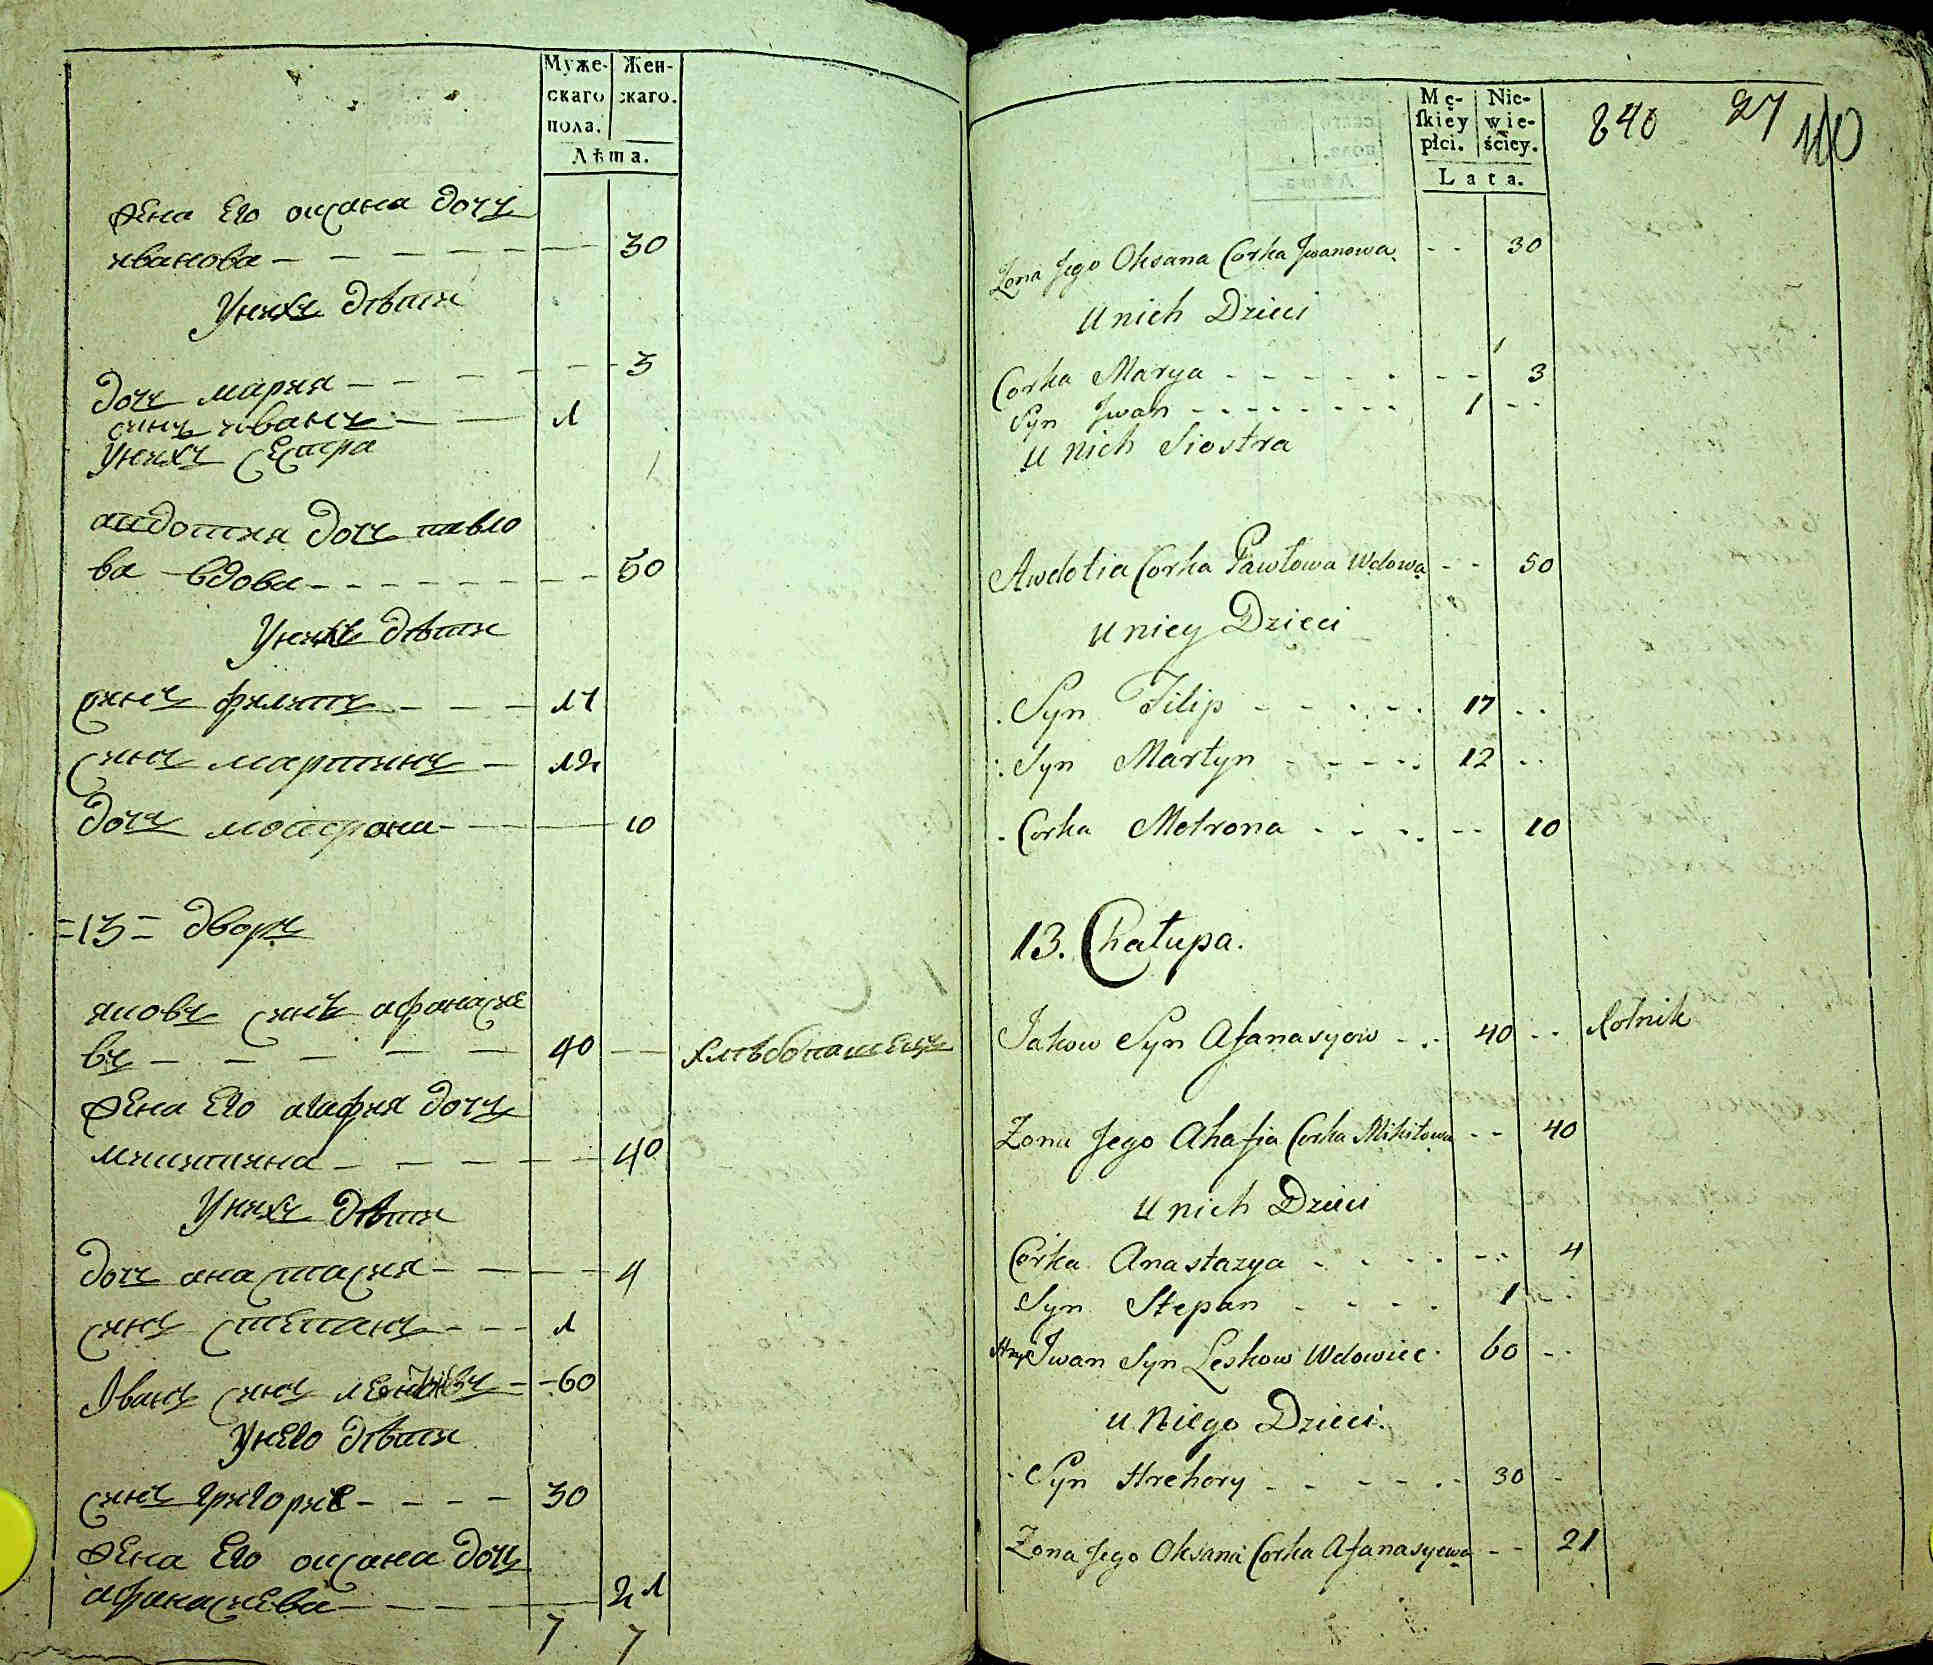 Муже-
скаго
пола.
Жен-
скаго.
Лѣта.
жена его оксана дочъ
иванова - - - - - - 30
унихъ дѣти
дочъ мария - - - - - 3
синъ иванъ - - - 1
унихъ сестра
авдотиа дочъ павло
ва вдова - - - - - - - 50
унихъ дѣти
синъ филипъ - - - 17
синъ мартинъ - 12
дочъ мотрона - - - 10
=13= дворъ
яковъ синъ афанасие
въ - - - - - 40 - - хлѣбопашецъ
жена его агафия дочъ
микитина - - - - - 40
унихъ дѣти
дочъ анастасия - - - - 4
синъ степанъ - - - 1
Іванъ синъ - - 60
унего дѣти
синъ григорие - - - - 30
жена его оксана дочъ
афанасиева - - - - - 21
7 7
Mę-
skiey
płci.
Nie-
wie-
ściey.
Lata.
840 27 110
Zona Jego Oksana Corka Jwanowa - - 30
U nich Dzieci
Corka Marya - - - - - - - - 3
Syn Jwan - - - - - - - - 1 - -
u nich Siostra
Awdotia Corka Pawłowa Wdowa - - 50
u niey Dzieci
Syn Filip - - - - - 17 - -
Syn Martyn - - - - - 12 - -
Corka Motrona - - - - - - 10
13. Chałupa.
Jakow Syn Afanasyow - - 40 - - Rolnik
Zona Jego Ahafia Corka Mikitowa - - 40
U nich Dzieci
Corka Anastazya - - - - - - 4
Syn Stepan - - - - 1 - -
Jwan Syn Leskow Wdowiec 60 - -
u Niego Dzieci.
Syn Hrehory - - - - - 30 -
Zona Jego Oksana Corka Afanasyewa - - 21